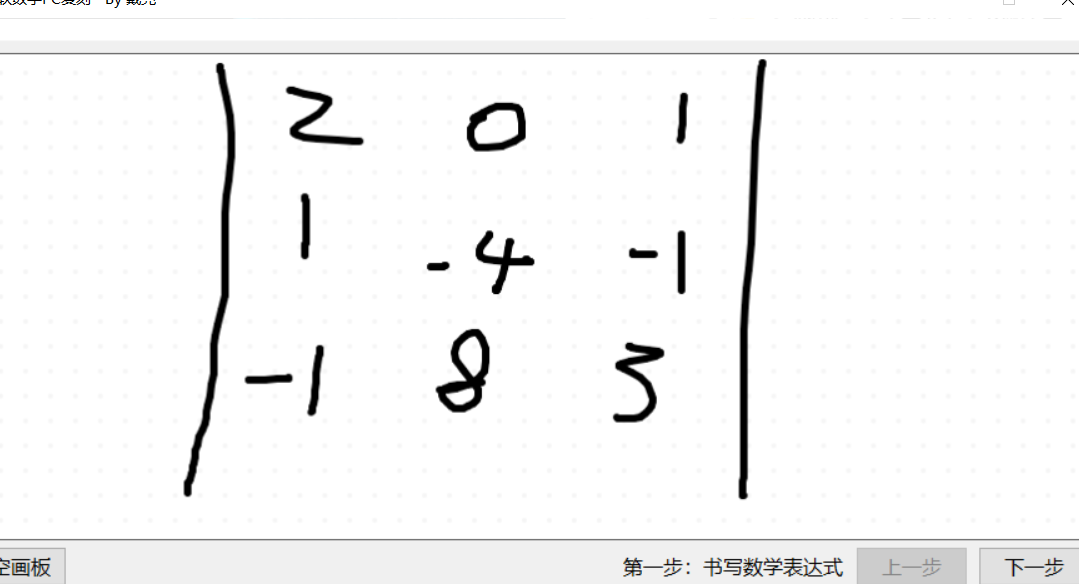 By
2 0 1
1 -4 -1
-1 8 3
空画板 第一步：书写数学表达式 上一步 下一步